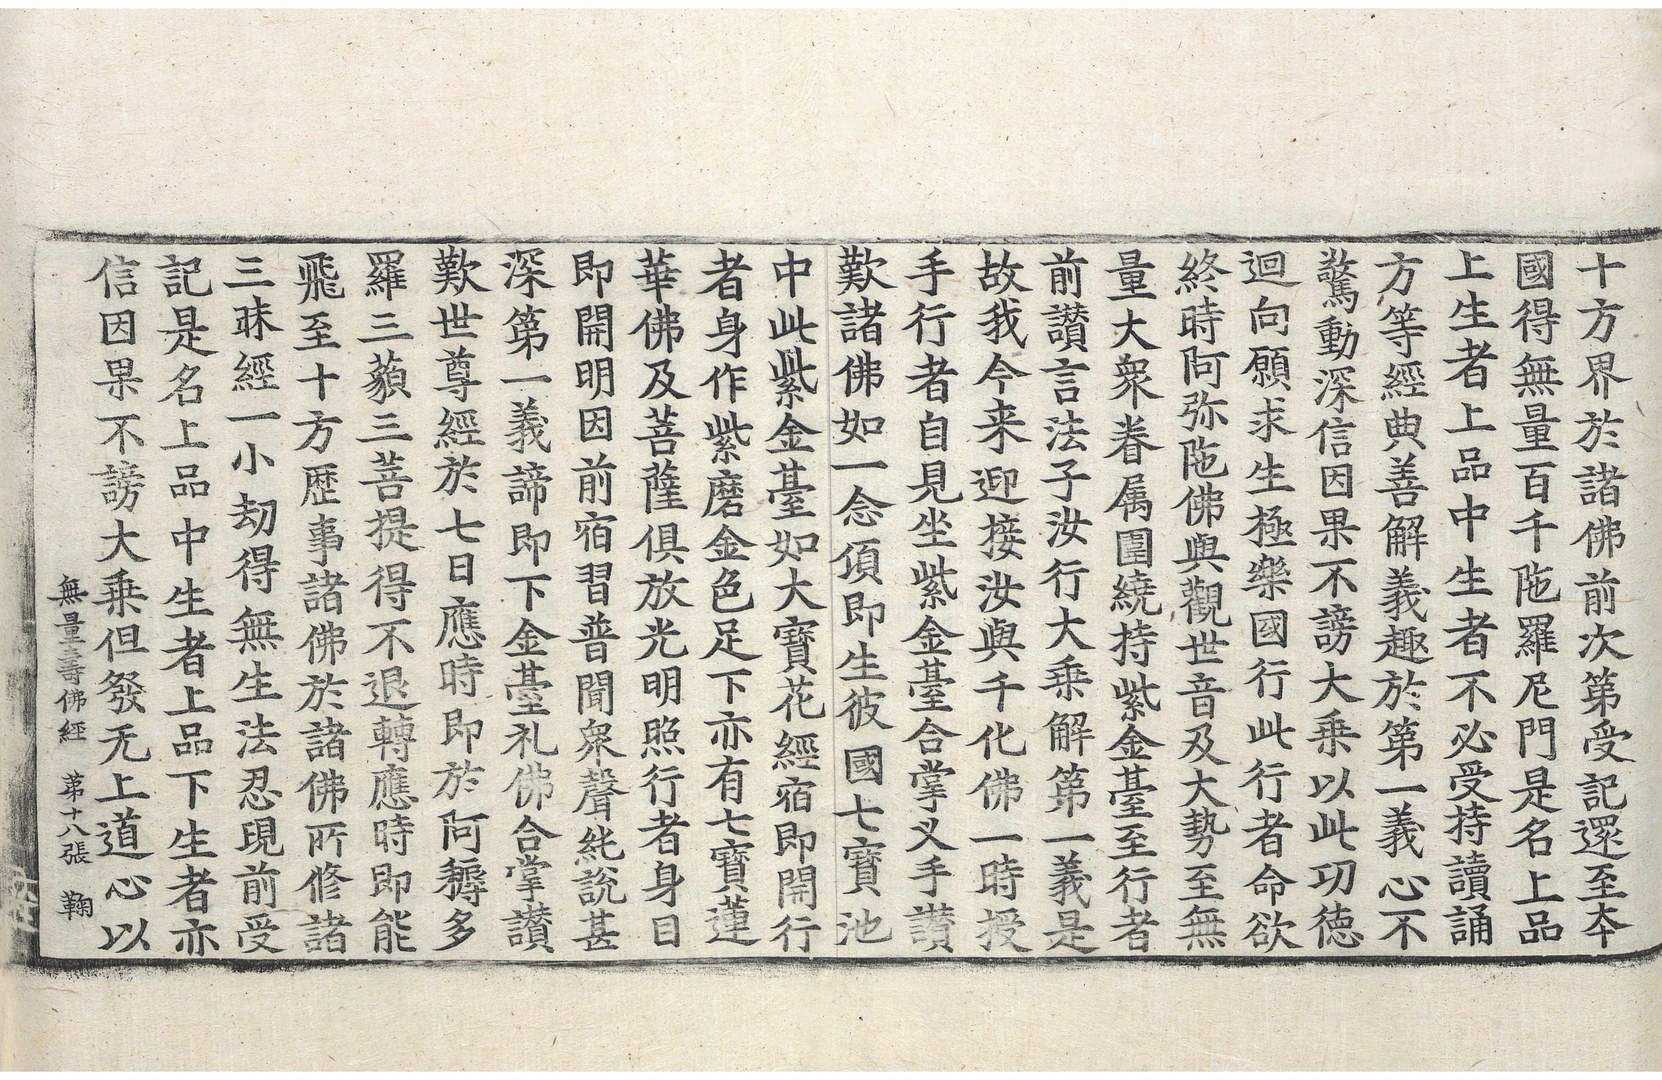 十方界於諸佛前次第受記還至夲
國得無量百千陁羅尼門是名上品
上生者上品中生者不必受持讀誦
方等經典善解義趣於第一義心不
驚動深信因果不謗大乗以此功徳
迴向願求生極樂國行此行者命欲
終時阿弥陁佛與觀世音及大勢至無
量大衆眷属圍繞持紫金臺至行者
前讃言法子汝行大乗解第一義是
故我今来迎接汝與千化佛一時授
手行者自見坐紫金臺合掌叉手讃
歎諸佛如一念頃即生彼國七寳池
中此紫金臺如大寳花經宿即開行
者身作紫磨金色足下亦有七寳蓮
華佛及菩薩俱放光明照行者身目
即開明因前宿習普聞衆聲純說甚
深第一義諦即下金臺礼佛合掌讃
歎世尊經於七日應時即於阿耨多
羅三藐三菩提得不退轉應時即能
飛至十方歷事諸佛於諸佛所修諸
三昧經一小劫得無生法忍現前受
記是名上品中生者上品下生者亦
信因果不謗大乗但發无上道心以
無量壽佛經 第十八張 鞠